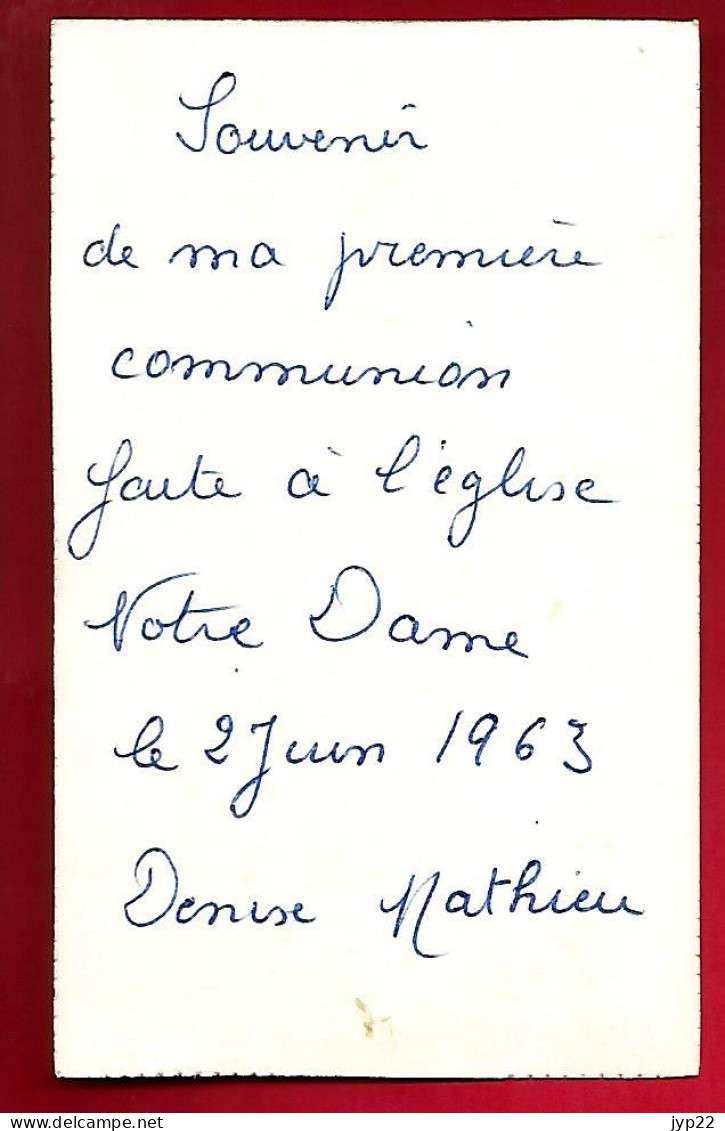 Souvenir
de ma première
communion
faite à l'église
Notre Dame
le 2 Juin 1963
Denise Mathieu
jyp22
delcampe.net